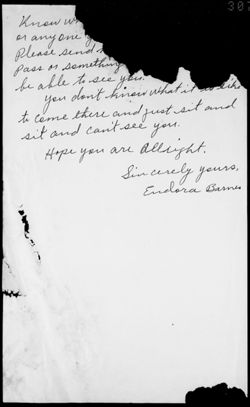 307
Know w
or anyone
Please send
Pass or something
be able to see you.
you dont know what it is like
to come there and just sit and
sit and can't see you.
Hope you are Allright.
Sincerely yours,
Eudora Barnes